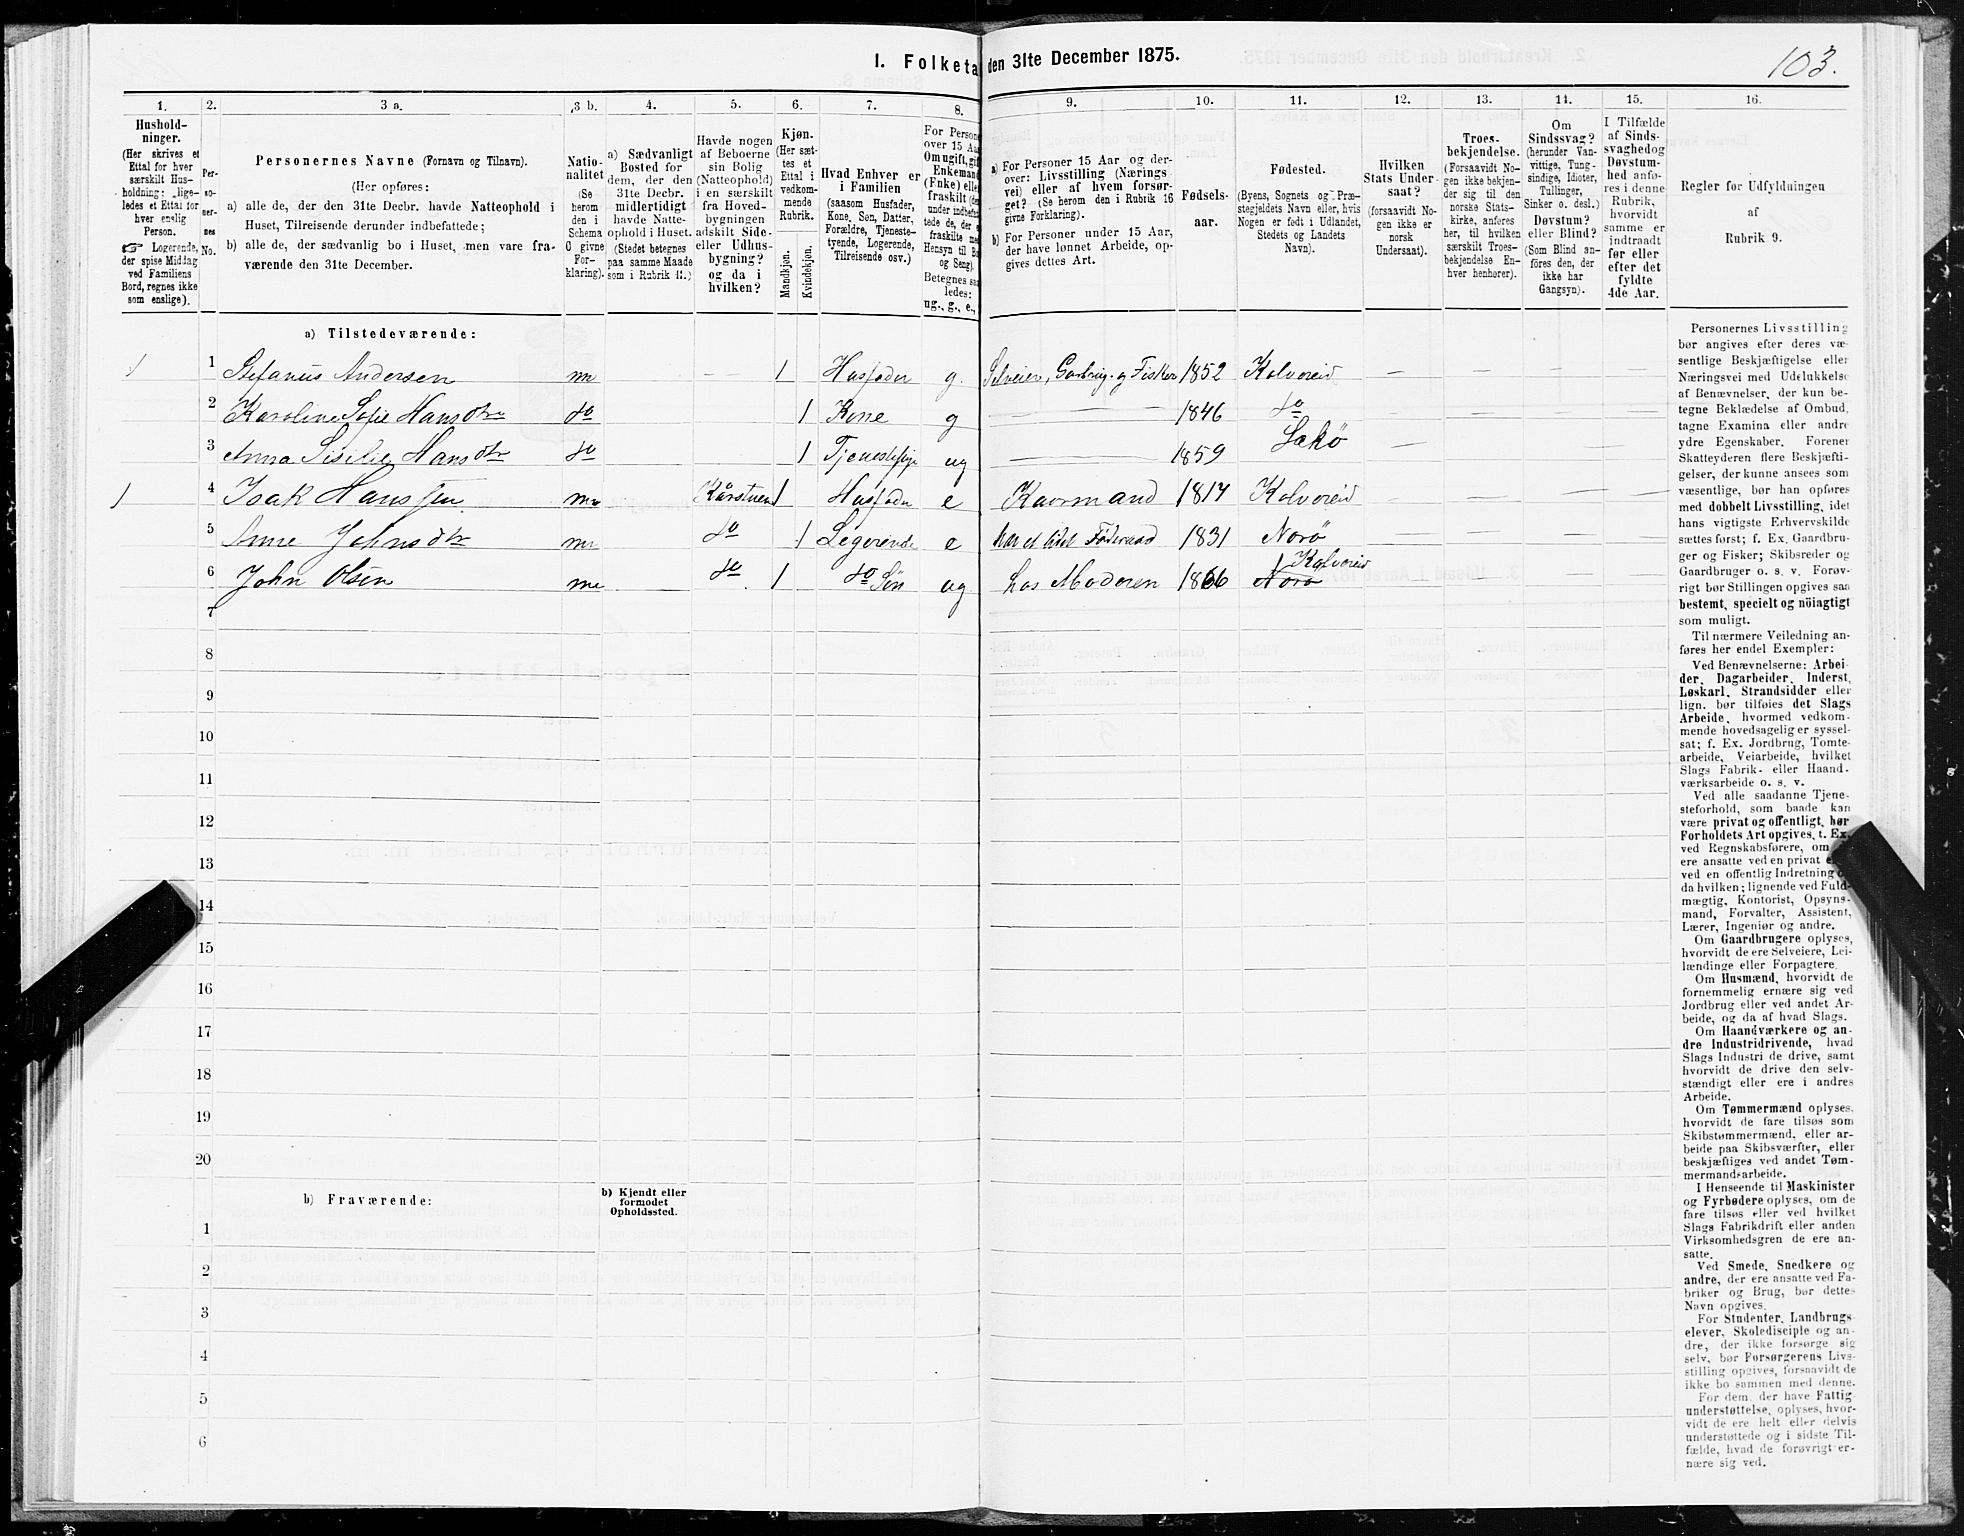 I. Folketa den 31te December 1875.
103.
1. 2. 3 a. 3 b. 4. 5. 6. 7. 8. 9. 10. 11. 12. 13. 14. 15. 16.
Hushold-
ninger.
(Her skrives et
Ettal for hver
særskilt Hus-
holdning; lige-
ledes et Ettal for
hver enslig
Person.
☞ Logerende,
der spise Middag
ved Familiens
Bord, regnes ikke
som enslige).
Per-
so-
ner-
nes
No.
Personernes Navne (Fornavn og Tilnavn).
(Her opføres:
a) alle de, der den 31te Decbr. havde Natteophold i
Huset, Tilreisende derunder indbefattede;
b) alle de, der sædvanlig bo i Huset, men vare fra-
værende den 31te December.
Natio-
nalitet
(Se
herom
den i
Schema
O givne
For-
klaring).
a) Sædvanligt
Bosted for
dem, der den
31te Decbr.
midlertidigt
havde Natte-
ophold i Huset.
(Stedet betegnes
paa samme Maade
som i Rubrik 11.)
Havde nogen
af Beboerne
sin Bolig
(Natteophold)
i en særskilt
fra Hoved-
bygningen
adskilt Side-
eller Udhus-
bygning?
og da i
hvilken?
Kjøn.
(Her sæt-
tes et
Ettal i
vedkom-
mende
Rubrik.
Mandkjøn.
Kvindekjøn.
Hvad Enhver er
i Familien
(saasom Husfader,
Kone, Søn, Datter,
Forældre, Tjeneste-
tyende, Logerende,
Tilreisende osv.)
For Persone
over 15 Aa
Om ugift, gif
Enkemand
(Enke) elle
fraskilt (de
under indbefa
tede de, der
fraskilte m
Hensyn til Bo
og Seng).
Betegnes saa
ledes:
ug., g., e.,
a) For Personer 15 Aar og der-
over: Livsstilling (Nærings-
vei) eller af hvem forsør-
get? (Se herom den i Rubrik 16
givne Forklaring).
b) For Personer under 15 Aar,
der have lønnet Arbeide, op-
gives dettes Art.
Fødsels-
aar.
Fødested.
(Byens, Sognets og Præ-
stegjeldets Navn eller, hvis
Nogen er født i Udlandet,
Stedets og Landets
Navn).
Hvilken
Stats Under-
saat?
(forsaavidt No-
gen ikke er
norsk
Undersaat).
Troes-
bekjendelse.
(Forsaavidt No-
gen ikke bekjen-
der sig til den
norske Stats-
kirke, anføres
her, til hvilken
særskilt Troes-
bekjendelse En-
hver henhører).
Om
Sindssvag?
(herunder Van-
vittige, Tung-
sindige, Idioter,
Tullinger,
Sinker o. desl.)
Døvstum?
eller Blind?
(Som Blind an-
føres den, der
ikke har
Gangsyn).
I Tilfælde
af Sinds-
svaghed og
Døvstum-
hed anfø-
res i denne
Rubrik,
hvorvidt
samme er
indtraadt
før eller
efter det
fyldte
4de Aar.
Regler for Udfyldningen
af
Rubrik 9.
a) Tilstedeværende:
1 1 Stefanus Andersen nn 1 Husfader g. Selveier, Gaardbrug. og Fisker 1852 Kolvereid
2 Karoline Sofie Hansdtr do 1 Kone g 1846 do
3 Anna Sisilie Hansdtr do 1 ug 1859 Lekø
1 4 Isak Hanssen nn Kårstuen 1 Husfader e Kaarmand 1817 Kolvereid
5 Anne Johnsdtr nn do 1 Logerende e har et lidet Føderaad 1831 Nærø
6 John Olsen nn do 1 do Søn ug. hos Moderen 1856 Kolvereid
7
8
9
10
11
12
13
14
15
16
17
18
19
20
b) Fraværende:
b) Kjendt eller
formodet
Opholdssted.
1
2
3
4
5
6
Personernes Livsstilling
bør angives efter deres væ-
sentlige Beskjæftigelse eller
Næringsvei med Udelukkelse
af Benævnelser, der kun be-
tegne Beklædelse af Ombud,
tagne Examina eller andre
ydre Egenskaber. Forener
Skatteyderen flere Beskjæfti-
gelser, der kunne ansees som
væsentlige, bør han opføres
med dobbelt Livsstilling, idet
hans vigtigste Erhvervskilde
sættes først; f. Ex. Gaardbru-
ger og Fisker; Skibsreder og
Gaardbruger o. s. v. Forøv-
rigt bør Stillingen opgives saa
bestemt, specielt og nöiagtigt
som muligt.
Til nærmere Veiledning an-
føres her endel Exempler:
Ved Benævnelserne: Arbei-
der, Dagarbeider, Inderst,
Løskarl, Strandsidder eller
lign. bør tilføies det Slags
Arbeide, hvormed vedkom-
mende hovedsagelig er syssel-
sat; f. Ex. Jordbrug, Tomte-
arbeide, Veiarbeide, hvilket
Slags Fabrik- eller Haand-
værksarbeide o. s. v.
Ved alle saadanne Tjene-
steforhold, som baade kan
være privat og offentligt, bør
Forholdets Art opgives, t. Ex.
ved Regnskabsførere, om
ere ansatte ved en privat
ved en offentlig Indretning
da hvilken; lignende ved Fuld-
mægtig, Kontorist, Opsyns-
mand, Forvalter, Assistent,
Lærer, Ingeniør og andre.
Om Gaardbrugere oplyses,
hvorvidt de ere Selveiere, Lei-
lændinge eller Forpagtere.
Om Husmænd, hvorvidt de
fornemmelig ernære sig ved
Jordbrug eller ved andet Ar-
beide, og da af hvad Slags.
Om Haandværkere og an-
dre Industridrivende, hvad
Slags Industri de drive, samt
hvorvidt de drive den selv-
stændigt eller ere i andres
Arbeide.
Om Tømmermænd oplyses,
hvorvidt de fare tilsøs som
Skibstømmermænd, eller ar-
beide paa Skibsværfter, eller
beskjæftiges ved andet Tøm-
mermandsarbeide.
I Henseende til Maskinister
og Fyrbødere oplyses, om de
fare tilsøs eller ved hvilket
Slags Fabrikdrift eller anden
Virksomhedsgren de ere an-
satte.
Ved Smede, Snedkere og
andre, der ere ansatte ved Fa-
briker og Brug, bør dettes
Navn opgives.
For Studenter, Landbrugs-
elever, Skoledisciple og an-
dre, der ikke forsørge sig
selv, bør Forsørgerens Livs-
stilling opgives, forsaavidt de
ikke bo sammen med denne.
For dem, der have Fattig-
understøttelse, oplyses, hvor-
vidt de ere helt eller delvis
understøttede og i sidste Til-
fælde, hvad de forøvrigt er-
nære sig ved.